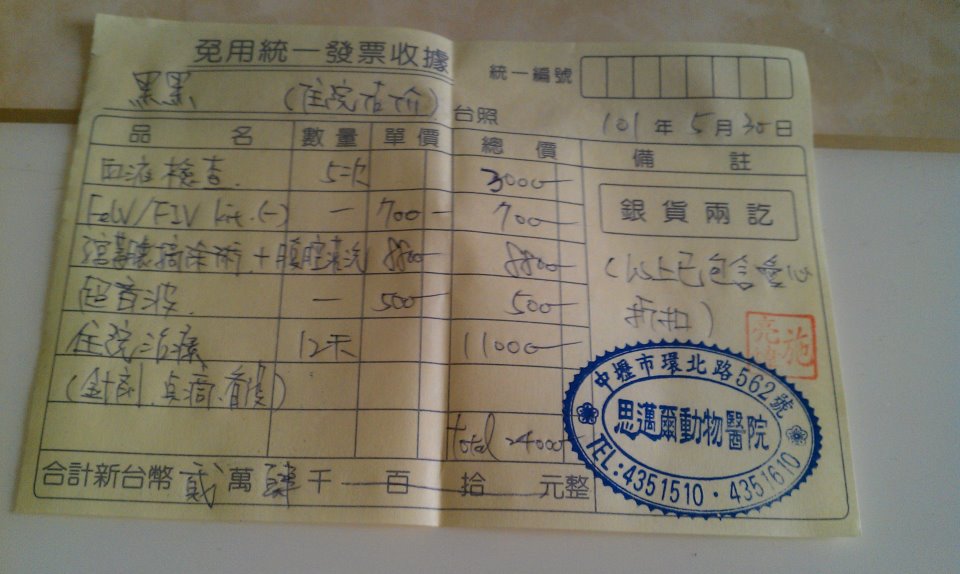 免用統一發票收據
統一編號
黑黑 (住院估价) 台照
101年5月30日
品名 數量 單價 總價 備註
血液檢查. 5次 3000
FeLV/FIV kit.(-) 一 700 700
銀貨兩訖
子宮卵巢摘除術+腹腔清洗 8800 8800
(以上已包含愛心
折扣)
超音波. 一 500 500
住院治療 12天 11000
(針劑.點滴.看護)
total 24000
合計新台幣 貳萬肆千 百 拾 元整
中壢市環北路562號
思邁爾動物醫院
TEL:4351510・4351610